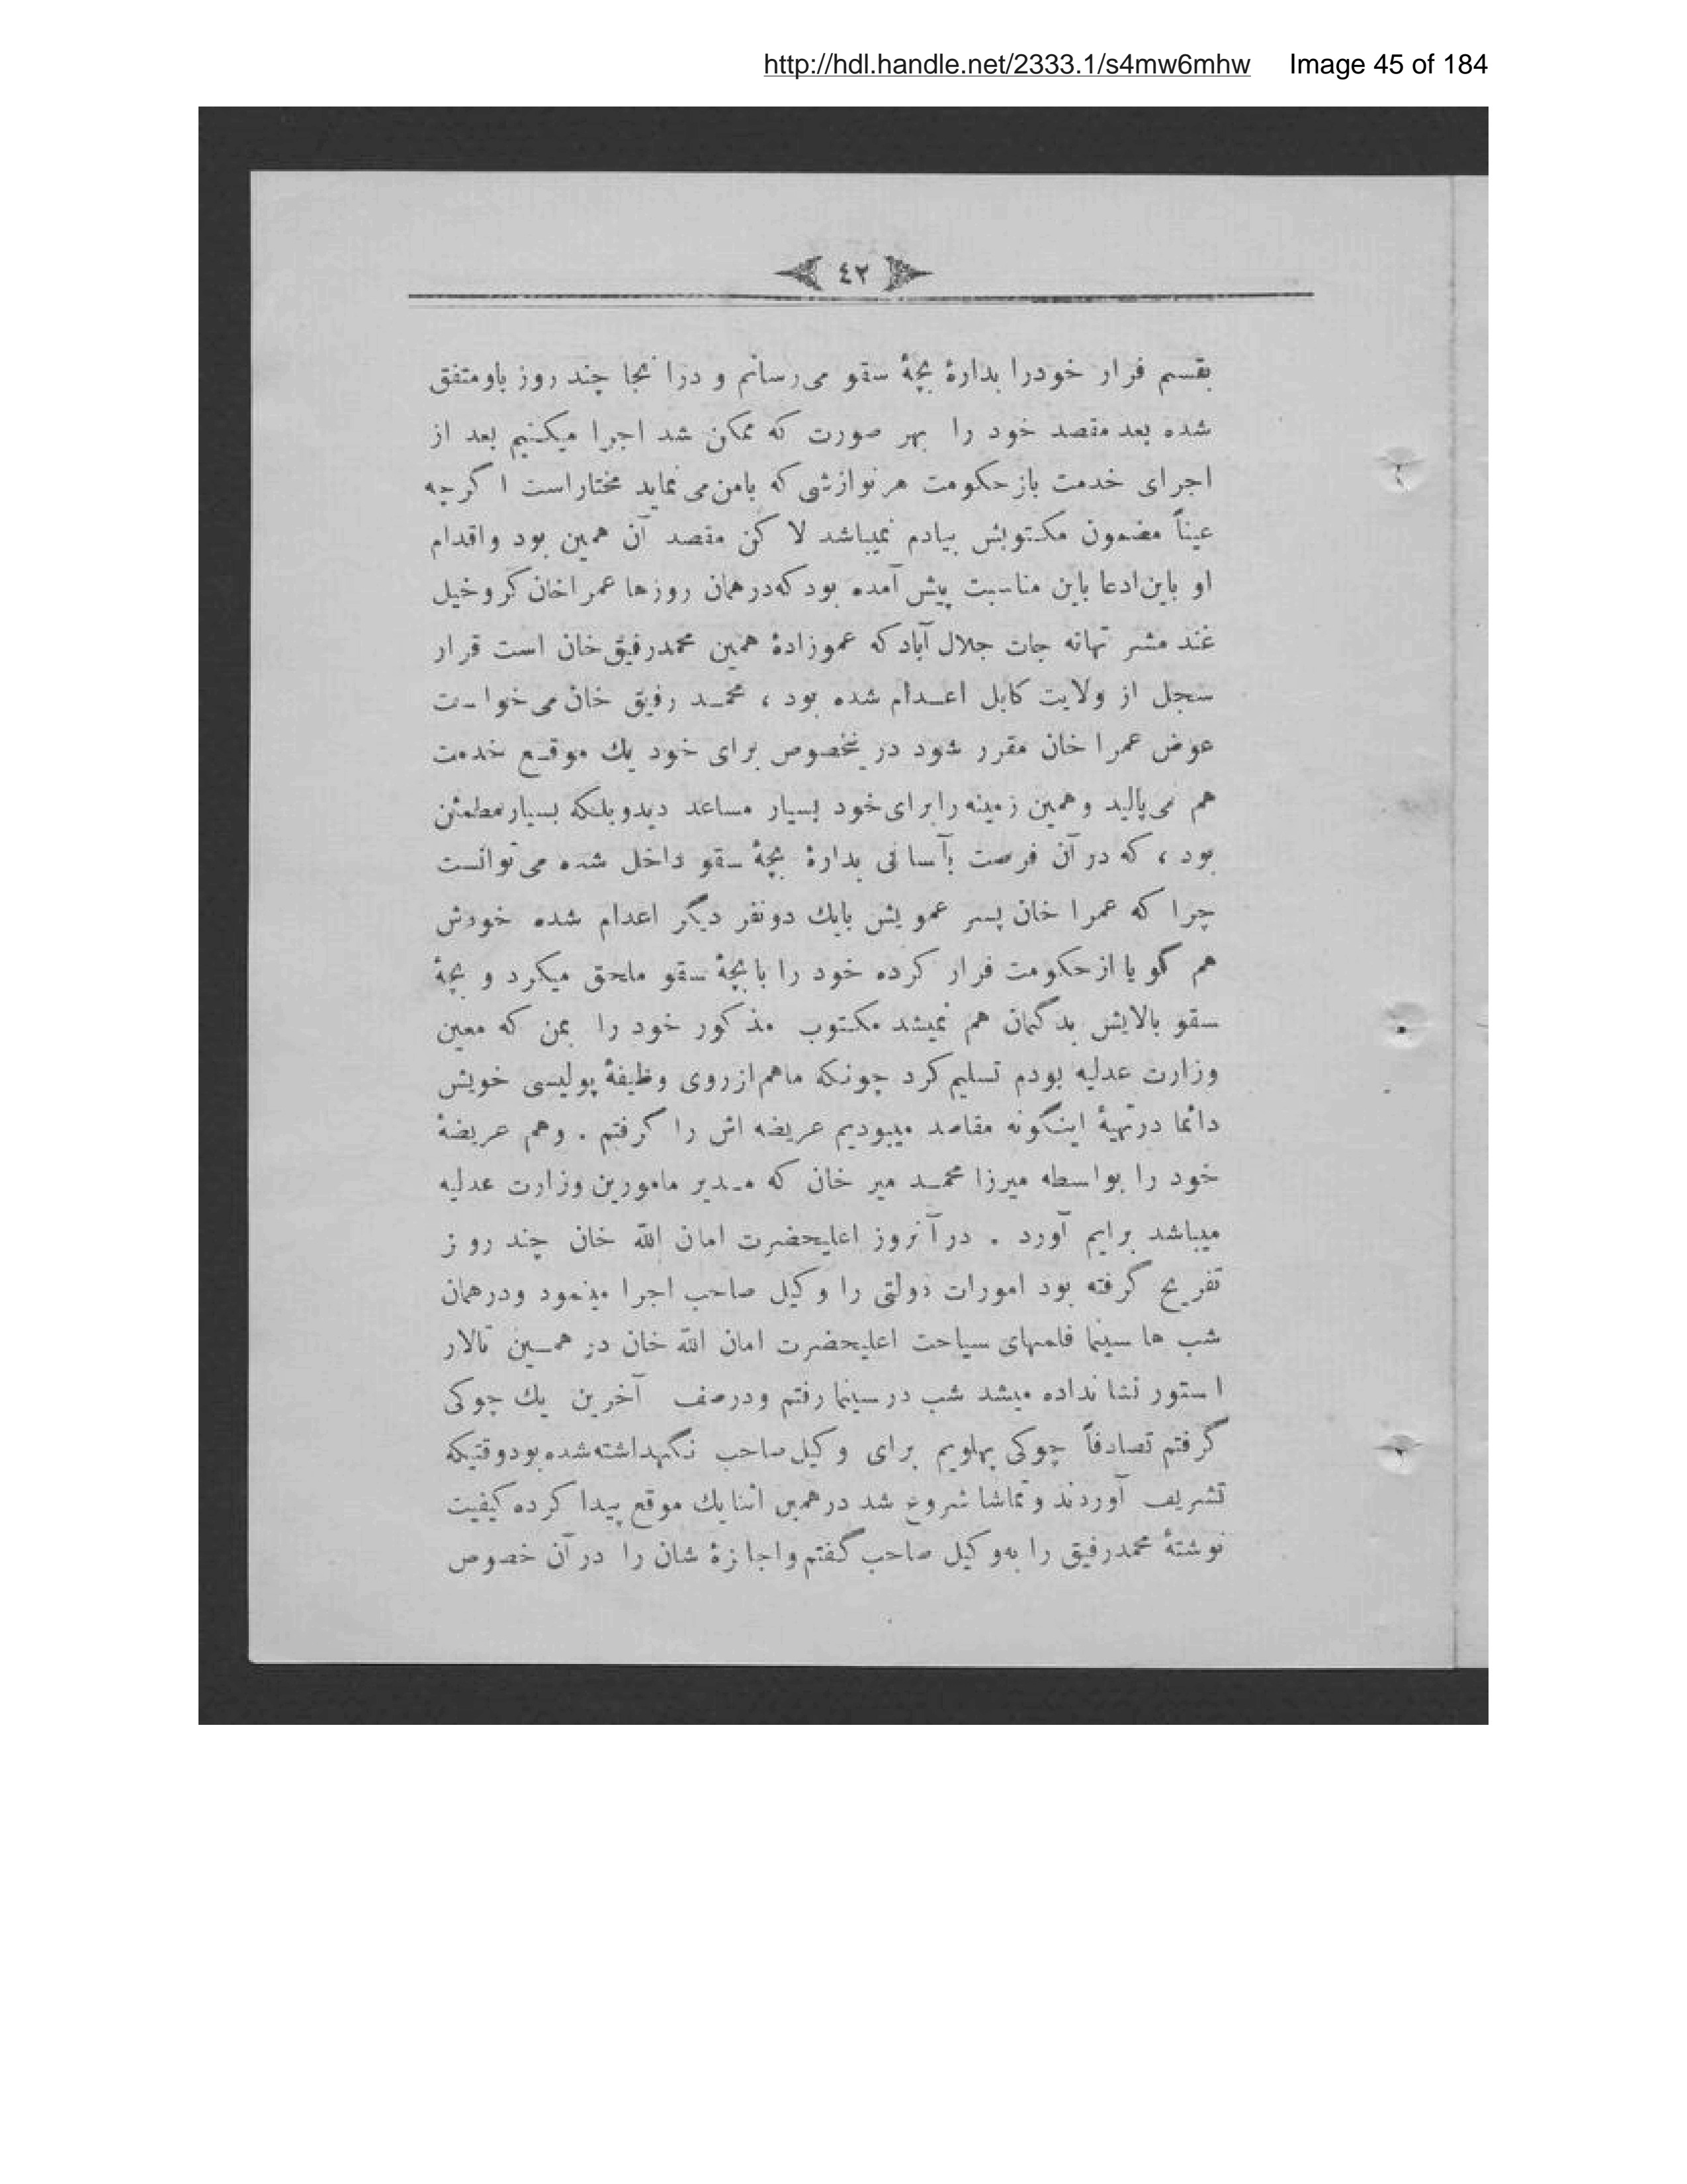 http://hdl.handle.net/2333.1/s4mw6mhw Image 45 of 184
٤٢
بقسم فرار خودرا بدارهٔ بچهٔ سقو می‌رسانم و درانجا چند روز باو متفق
شده بعد مقصد خود را بهر صورت که ممکن شد اجرا میکنیم بعد از
اجرای خدمت باز حکومت هر نوازشی که بامن می نماید مختار است اگرچه
عیناً مضمون مکتوبش بیادم نمیباشد لاکن مقصد آن همین بود و اقدام
او باین ادعا باین مناسبت پیش آمده بود که در همان روزها عمراخان کروخیل
غند مشر تهانه جات جلال آباد که عموزادهٔ همین محمد رفیق خان است قرار
سجل از ولایت کابل اعدام شده بود ، محمد رفیق خان می خواست
عوض عمرا خان مقرر شود درینخصوص برای خود یك موقع خدمت
هم می پالید و همین زمینه را برای خود بسیار مساعد دید و بلکه بسیار مطمئن
بود ، که در آن فرصت بآسانی بدارهٔ بچهٔ سقو داخل شده می توانست
چرا که عمرا خان پسر عمویش بایك دونفر دیگر اعدام شده خودش
هم گویا از حکومت فرار کرده خود را با بچهٔ سقو ملحق میکرد و بچهٔ
سقو بالایش بدگمان هم نمیشد مکتوب مذکور خود را بمن که معین
وزارت عدلیه بودم تسلیم کرد چونکه ما هم از روی وظیفهٔ پولیسی خویش
دائما در تهیهٔ اینگونه مقاصد میبودیم عریضه اش را گرفتم . و هم عریضهٔ
خود را بواسطه میرزا محمد میر خان که مدیر مامورین وزارت عدلیه
میباشد برایم آورد . در آنروز اعلیحضرت امان الله خان چند روز
تفریح گرفته بود امورات دولتی را وکیل صاحب اجرا مینمود و در همان
شب ها سینما فلمهای سیاحت اعلیحضرت امان الله خان در همین تالار
استور نشانداده میشد شب در سینما رفتم و در صف آخرین یك چوکی
گرفتم تصادفاً چوکی پهلویم برای وکیل صاحب نگهداشته شده بود وقتیکه
تشریف آوردند و تماشا شروع شد در همین اثنا یك موقع پیدا کرده کیفیت
نوشتهٔ محمد رفیق را به وکیل صاحب گفتم و اجازهٔ شان را در آن خصوص